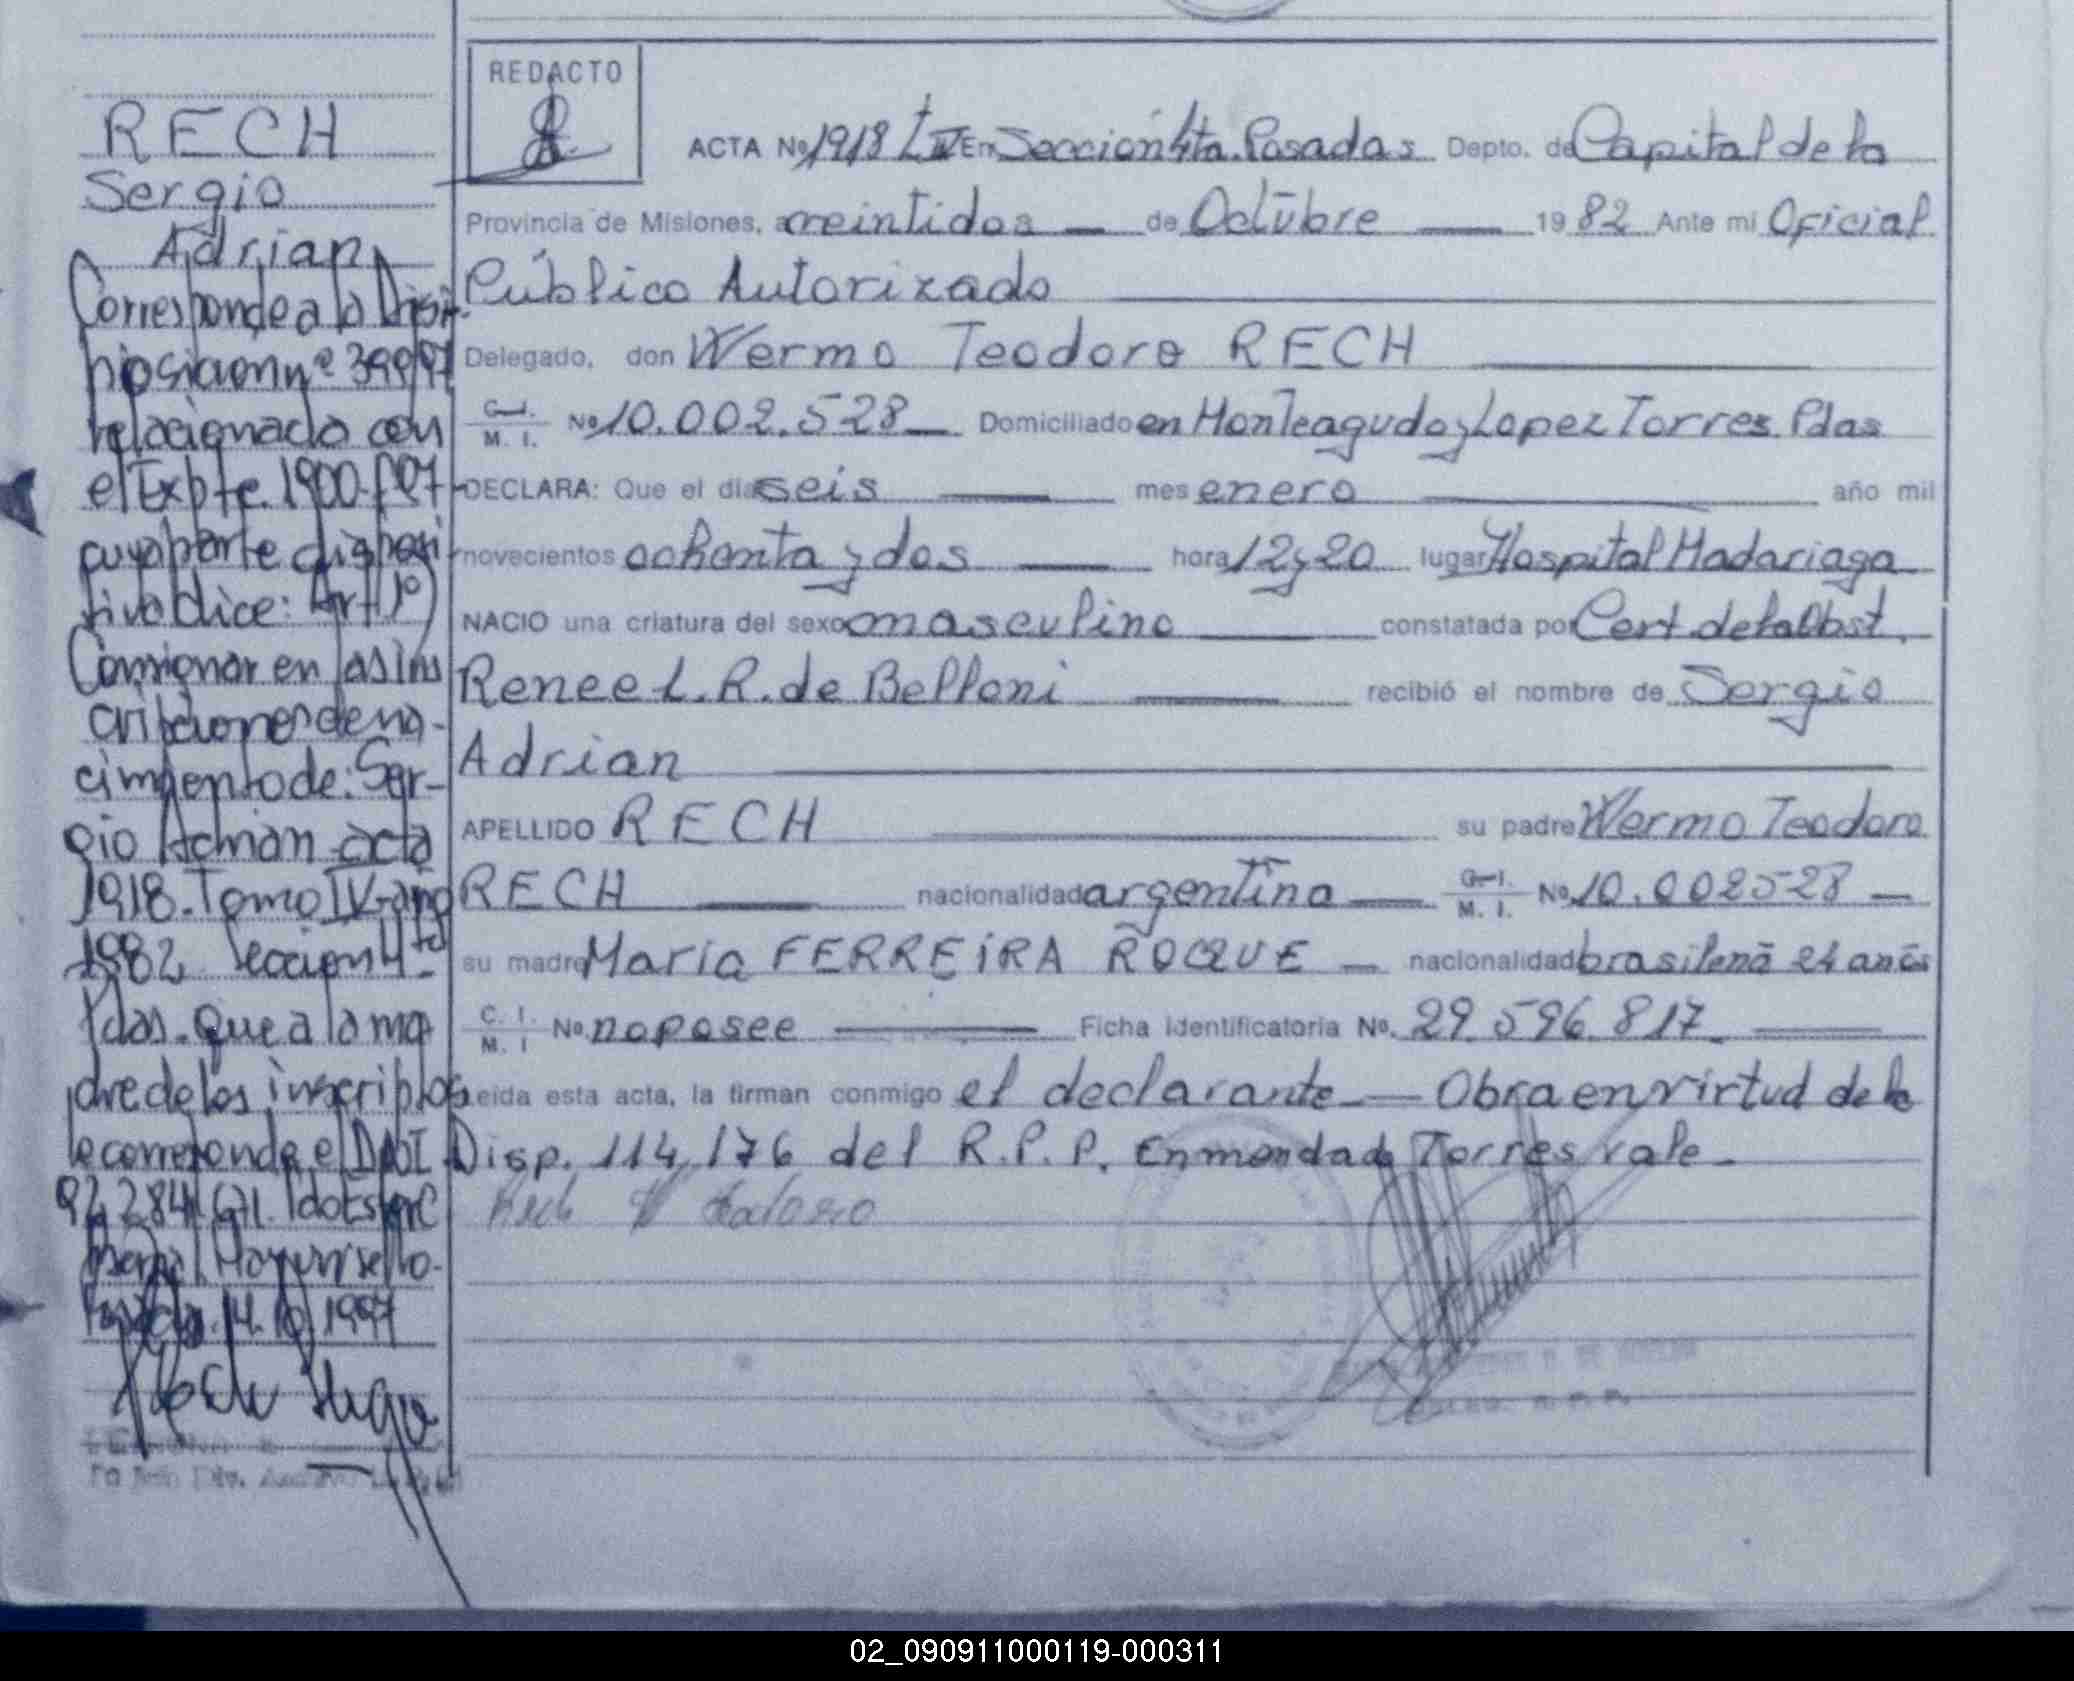 RECH
Sergio
Adrian
Corresponde a la Dispo-
nosicion nº 399/97
relacionado con
el Expte. 1900-F-97-
cuya parte disposi-
tiva dice: Art 1º)
Consignar en las ins
cripciones de na-
cimiento de: Ser-
gio Adrian acta
1918. Tomo IV-año
1982 Seccion 4ta-
Pdas. Que a la ma
dre de los inscriptos
le corresponde el DNI
92.284.
sello-
14.10.1997
REDACTO
ACTA Nº 1918 t IV En Sección 4ta. Posadas Depto. de Capital de la
Provincia de Misiones, a veintidos de Octubre 1982 Ante mi Oficial
Público Autorizado
Delegado, don Wermo Teodoro RECH
C. I. M. I. Nº 10.002.528 Domiciliado en Monteagudo y Lopez Torres. Pdas
DECLARA: Que el día seis mes enero año mil
novecientos ochenta y dos hora 12 y 20 lugar Hospital Madariaga
NACIO una criatura del sexo masculino constatada por Cert. de la Obst.
Renee L. R. de Belloni recibió el nombre de Sergio
Adrian
APELLIDO RECH su padre Wermo Teodoro
RECH nacionalidad argentina C. I. M. I. Nº 10.002528
su madre Maria FERREIRA ROQUE nacionalidad brasileña 24 años
C. I. M. I Nº no posee Ficha identificatoria Nº. 29.596.817
Leída esta acta, la firman conmigo el declarante — Obra en virtud de la
Disp. 114/76 del R.P.P. Enmendado Torres vale-
Rech W Teodoro
02_090911000119-000311